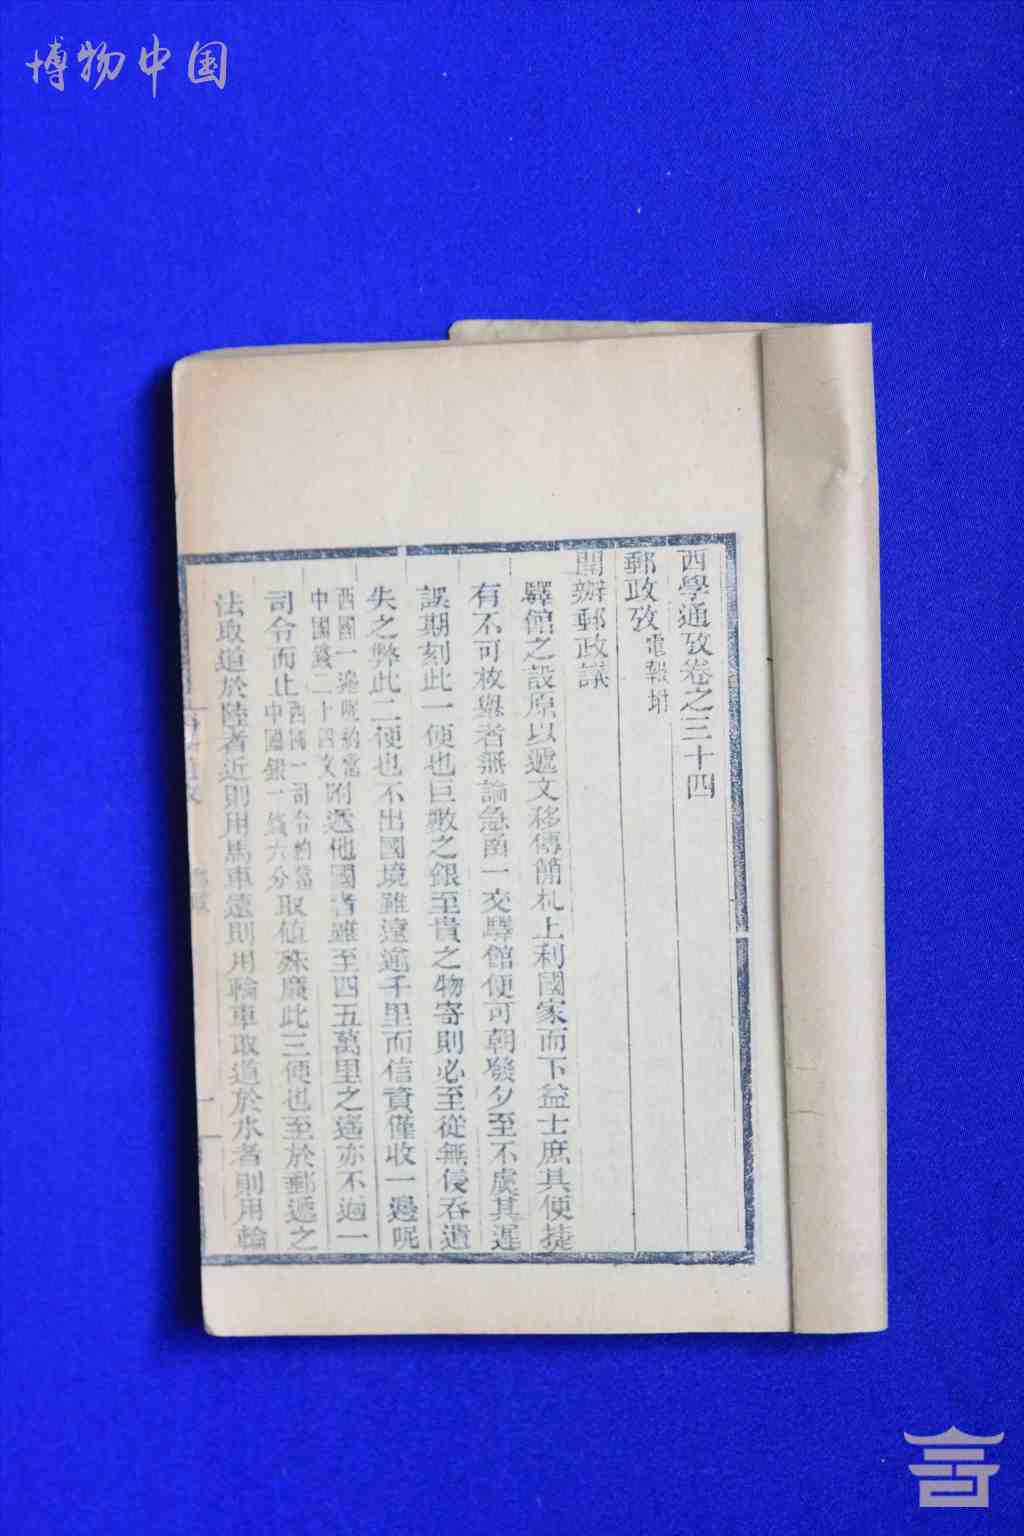 博物中国
西學通攷卷之三十四
郵政攷 電報坿
開辦郵政議
驛館之設原以遞文移傳簡札上利國家而下益士庶其便捷
有不可枚舉者無論急函一交驛館便可朝發夕至不虞其遲
誤期刻此一便也巨數之銀至貴之物寄則必至從無侵吞遺
失之弊此二便也不出國境雖遠逾千里而信資僅收一邊呢
西國一邊呢約當
中國錢二十四文
附遞他國者雖至四五萬里之遙亦不過一
司令而止
西國一司令約當
中國銀一錢六分
取值殊廉此三便也至於郵遞之
法取道於陸者近則用馬車遠則用輪車取道於水者則用輪